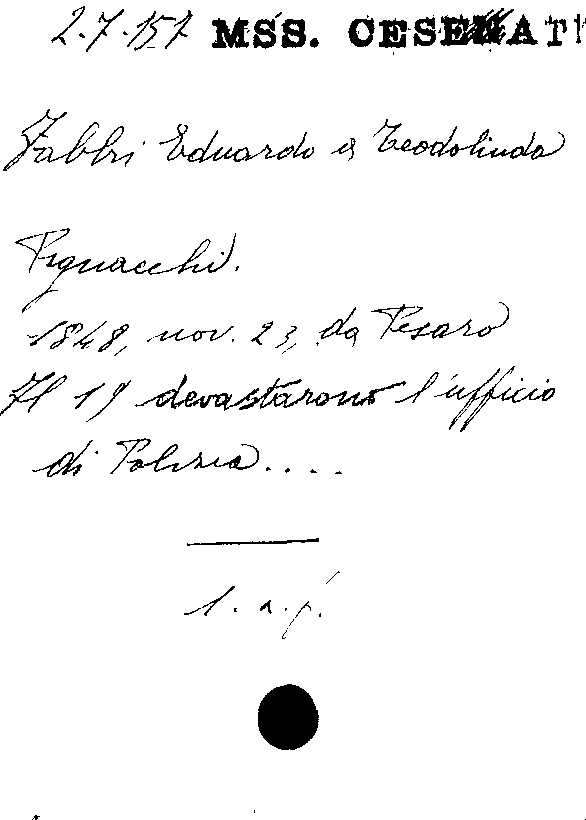 2.7.157 MSS. CESENATI
Fabbri Eduardo a Teodolinda
Pignacchi.
1848, nov. 23, da Pesaro
Il 19 devastarono l'ufficio
di Polizia....
l. a. f.